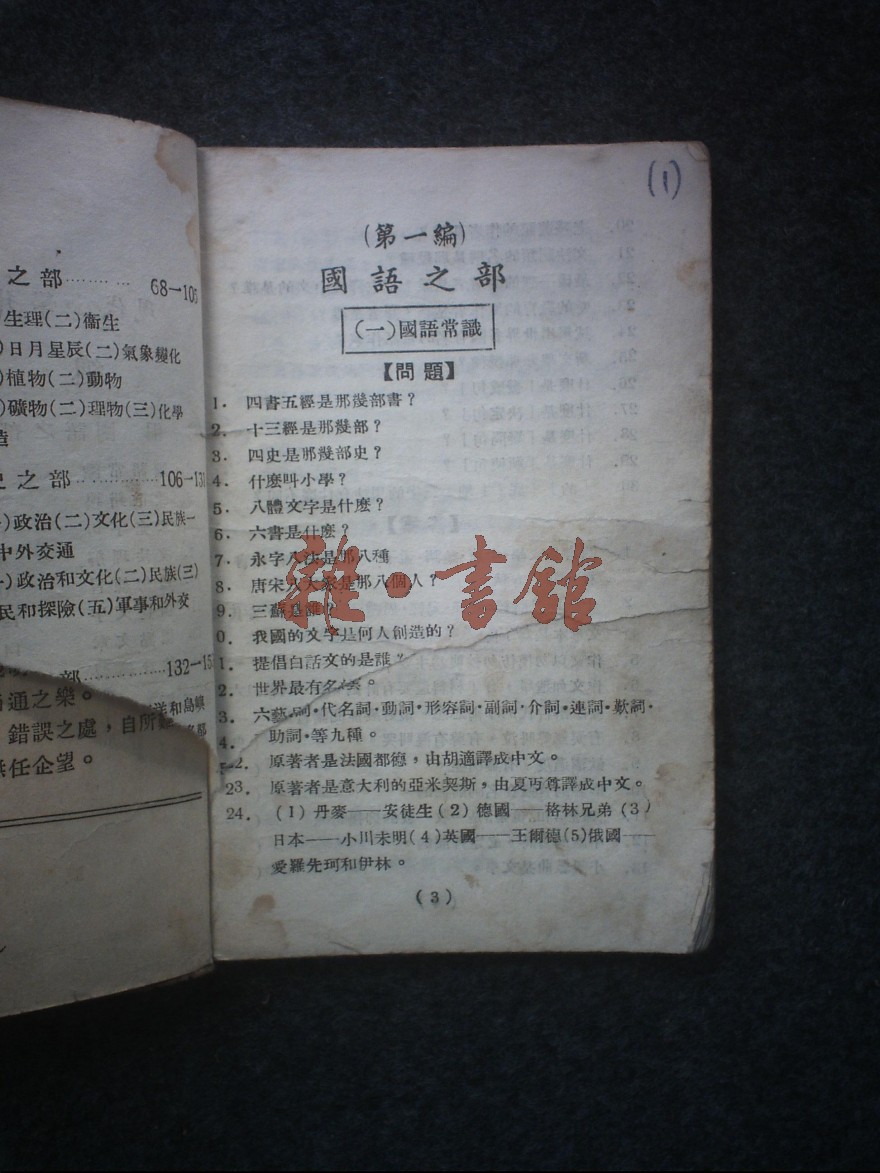 之部………… 68—106
生理(二)衞生
)日月星辰(二)氣象變化
)植物(二)動物
)礦物(二)理物(三)化學
造
史之部………… 106—131
)政治(二)文化(三)民族一
中外交通
)政治和文化(二)民族(三)
民和探險(五)軍事和外交
部………132—15
通之樂。
洋和島嶼
錯誤之處，自所
無任企望。
(1)
(第一編)
國語之部
(一)國語常識
【問題】
1. 四書五經是那幾部書？
2. 十三經是那幾部？
3. 四史是那幾部史？
4. 什麽叫小學？
5. 八體文字是什麽？
6. 六書是什麽？
7. 永字八法是那八種
8. 唐宋八大家是那八個人？
9. 三蘇是誰？
0. 我國的文字是何人創造的？
1. 提倡白話文的是誰？
2. 世界最有名 。
3. 六藝 詞·代名詞·動詞·形容詞·副詞·介詞·連詞·歎詞·
4. 助詞·等九種。
2. 原著者是法國都德，由胡適譯成中文。
23. 原著者是意大利的亞米契斯，由夏丏尊譯成中文。
24. (1)丹麥——安徒生(2)德國——格林兄弟(3)
日本——小川未明(4)英國——王爾德(5)俄國——
愛羅先珂和伊林。
(3)
雜·書館